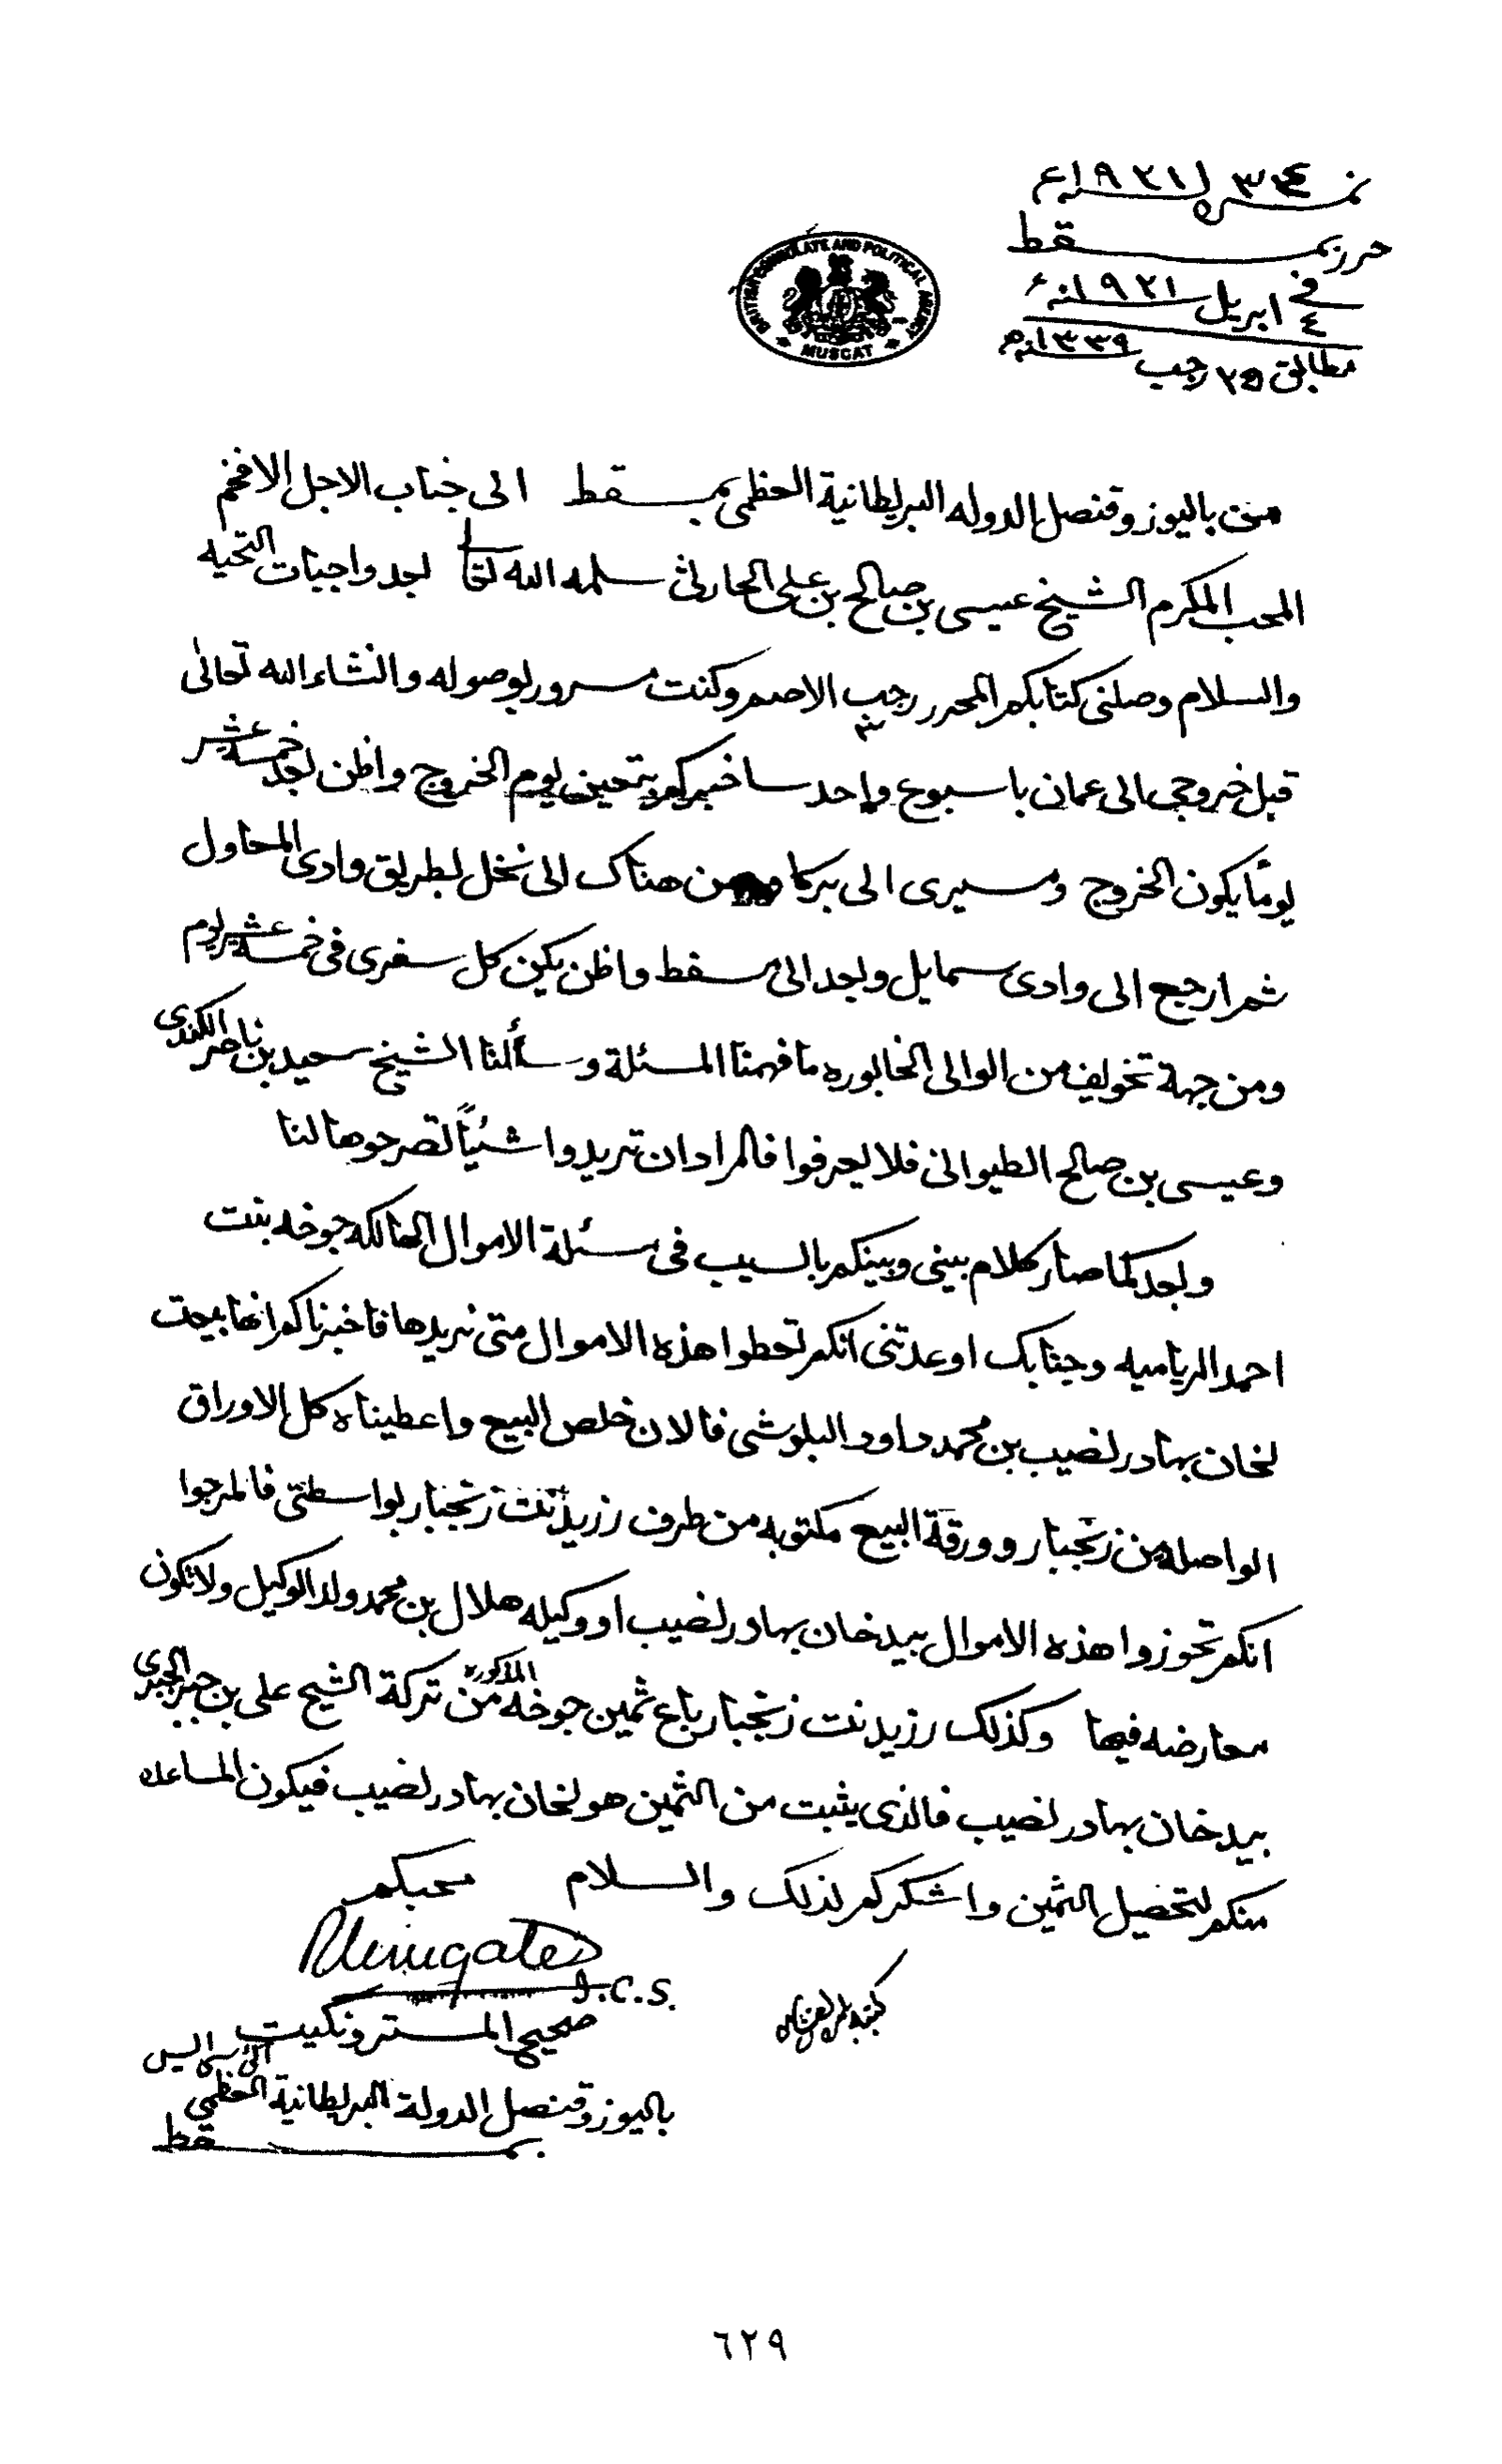 نمره ٣٤ لـ ١٩٢١ع
حرر بمسقط
في ٤ ابريل سنه ١٩٢١ء
مطابق ٢٥ رجب سنه ١٣٣٩هـ
BRITISH CONSULATE AND POLITICAL AGENCY
MUSCAT
من باليوز وقنصل الدوله البريطانية العظمى بمسقط الى جناب الاجل الافخم
المحب المكرم الشيخ عيسى بن صالح بن علي الحارثى سلمه الله تعالى بعد واجبات التحيه
والسلام وصلنى كتابكم المحرر رجب الاصم وكنت مسرور بوصوله وانشاء الله تعالى
قبل خروجى الى عمان باسبوع واحد ساخبركم بتعين يوم الخروج واظن بعد خمسة عشر
يومًا يكون الخروج ومسيرى الى بركا ومن هناك الى نخل بطريق وادى المعاول
ثم ارجع الى وادى سمايل وبعد الى مسقط واظن يكن كل سفرى فى خمسة عشر يوم
ومن جهة تخويف من الوالى الخابوره ما فهمنا المسئلة وسألنا الشيخ سعيد بن ناصر الكندى
وعيسى بن صالح الطيوانى فلا يعرفوا فالمراد ان تريدوا شيئًا تصرحوها لنا
وبعد كما صار كلام بينى وبينكم بالسيب فى مسئلة الاموال المالكه جوخه بنت
احمد الرياميه وجنابك اوعدتنى انكم تعطوا هذه الاموال متى نريدها فاخبرناكم انها بيعت
لخان بهادر نصيب بن محمد داود البلوشى فالان خلص البيع واعطيناه كل الاوراق
الواصله من زنجبار وورقة البيع مكتوبه من طرف رزيدنت زنجبار بواسطتى فالمرجوا
انكم تحوزوا هذه الاموال بيد خان بهادر نصيب او وكيله هلال بن محمد ولد الوكيل ولا تكون
معارضه فيها وكذلك رزيدنت زنجبار باع ثمين جوخه المذكوره من تركة الشيخ علي بن جبر الجبرى
بيد خان بهادر نصيب فالذى يثبت من الثمين هو لخان بهادر نصيب فيكون المساعده
منكم لتحصيل الثمين واشكركم لذلك والسلام محبكم
RWingate
I.C.S.
صحيح المستر ونكيت
آئى سى ايس
باليوز وقنصل الدولة البريطانية العظمى
بمسقط
٦٢٩